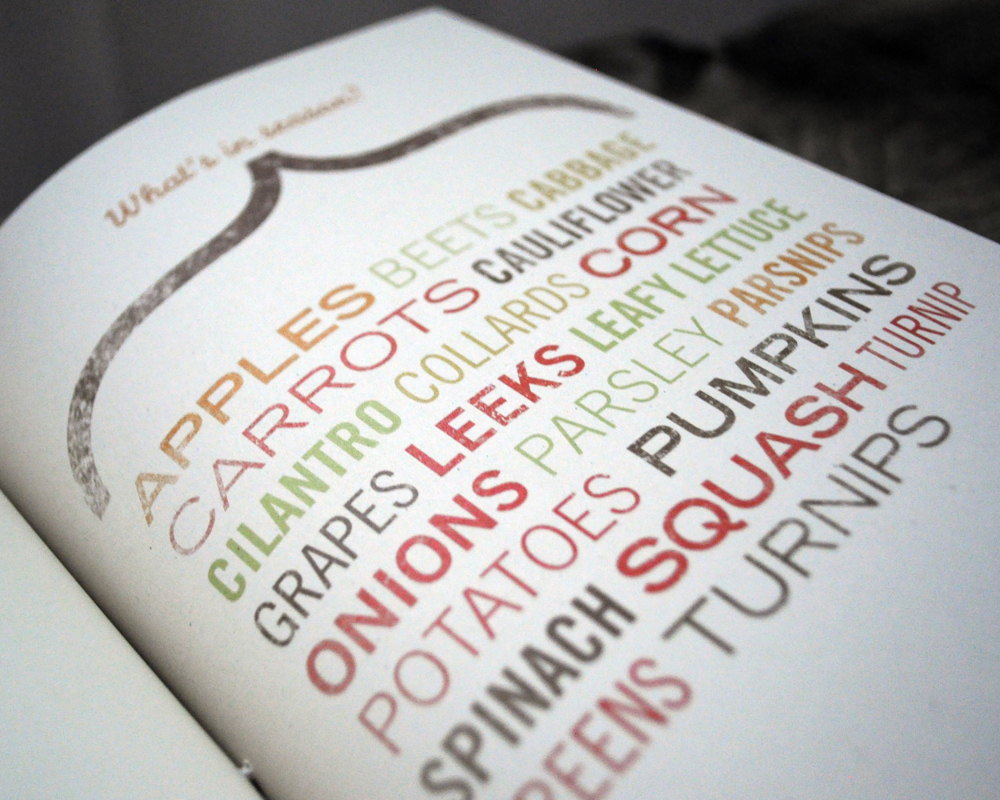 What's in season?
APPLES BEETS CABBAGE
CARROTS CAULIFLOWER
CILANTRO COLLARDS CORN
GRAPES LEEKS LEAFY LETTUCE
ONIONS PARSLEY PARSNIPS
POTATOES PUMPKINS
SPINACH SQUASH TURNIP
REENS TURNIPS